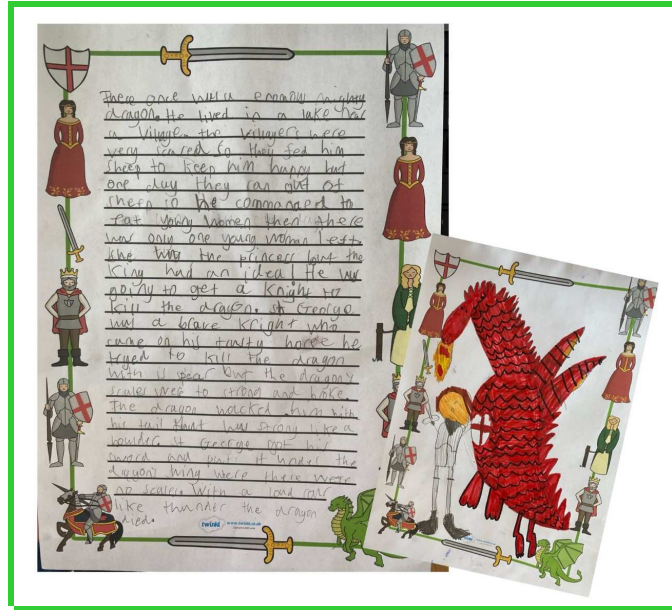 There once was a enomous mighty
dragon. He lived in a lake near
a village. the villagers were
very scared so they fed him
sheep to keep him happy but
one day they ran out of
sheep so he commanded to
eat young women then there
was only one young woman left
she was the princess but the
King had an idea! He was
going to get a Knight to
kill the dragon. st George
was a brave knight who
came on his trusty horse he
tryed to kill the dragon
with is spear but the dragons
scales were to strong and broke.
The dragon wacked him with
his tail that was strong like a
boulder. st George got his
sword and put it under the
dragons wing were there were
no scales. With a loud roar
like thunder the dragon
died.
twinkl www.twinkl.co.uk